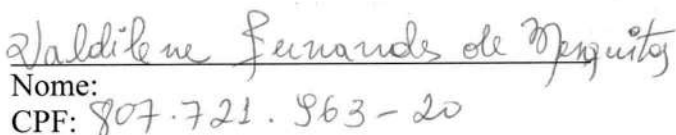 Valdilene Fernandes de Mesquita
Nome:
CPF: 807.721.963-20